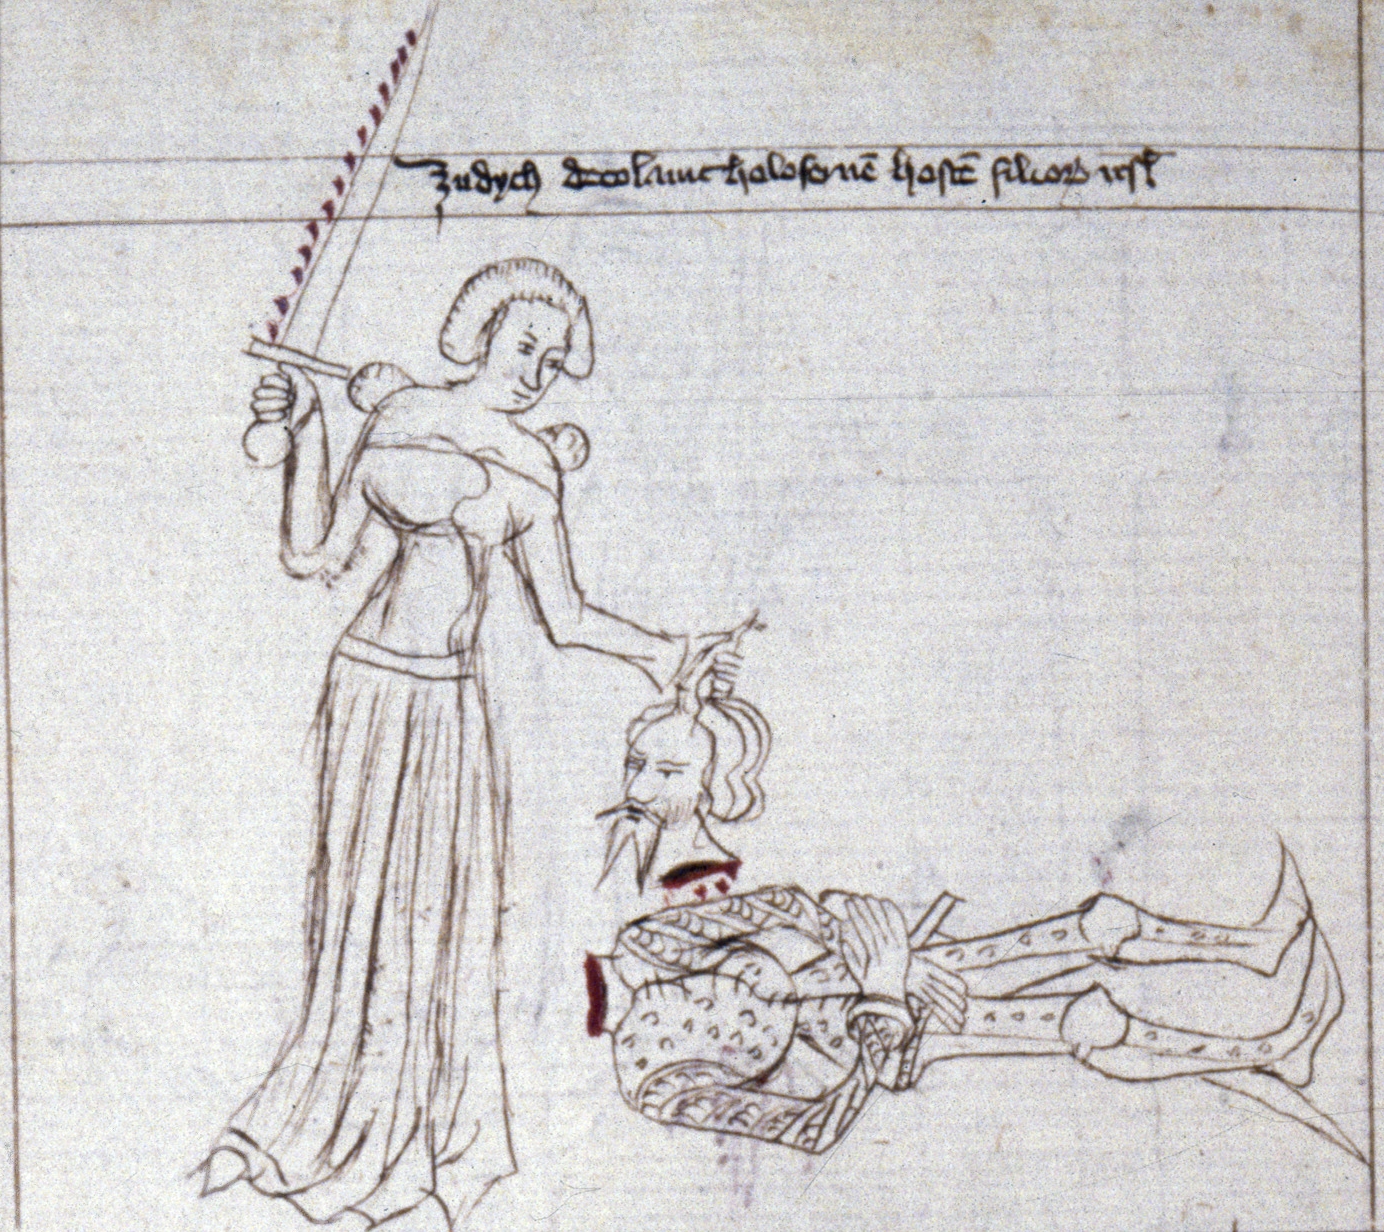 Judych decolauit holofernē hostē filior isrl